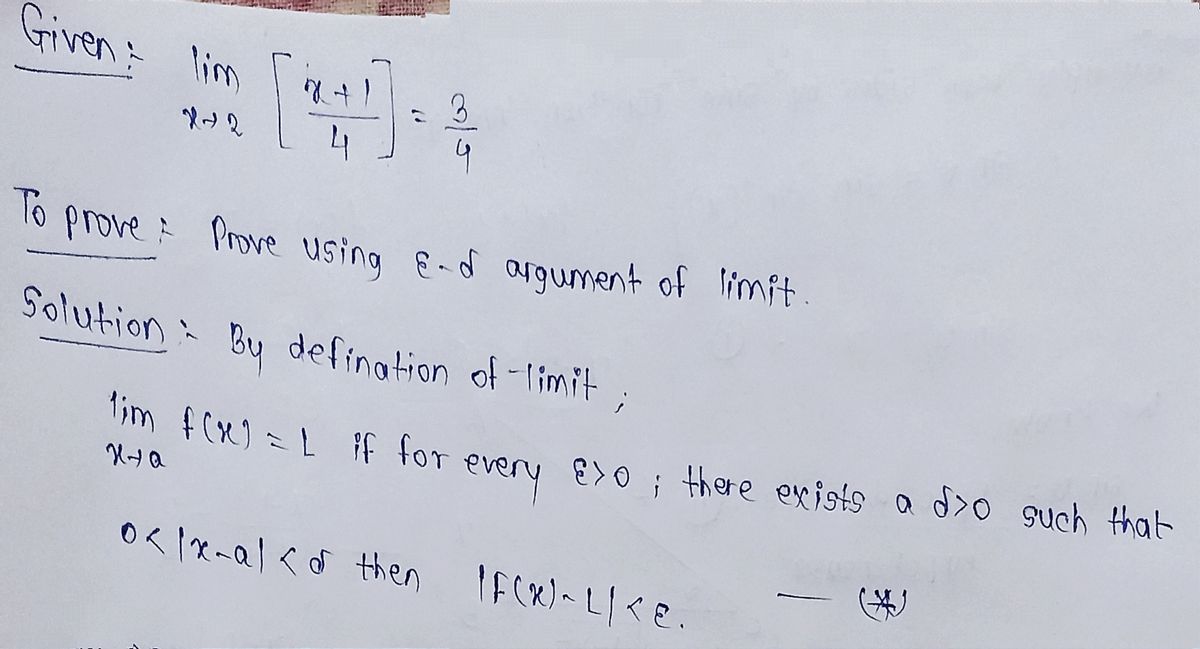 Given :- lim x→2 [ x+1 / 4 ] = 3/4
To prove :- Prove using ε-δ argument of limit.
Solution :- By defination of limit ;
lim x→a f(x) = L if for every ε>0 ; there exists a δ>0 such that
0<|x-a|<δ then |f(x)-L|<ε. — (*)